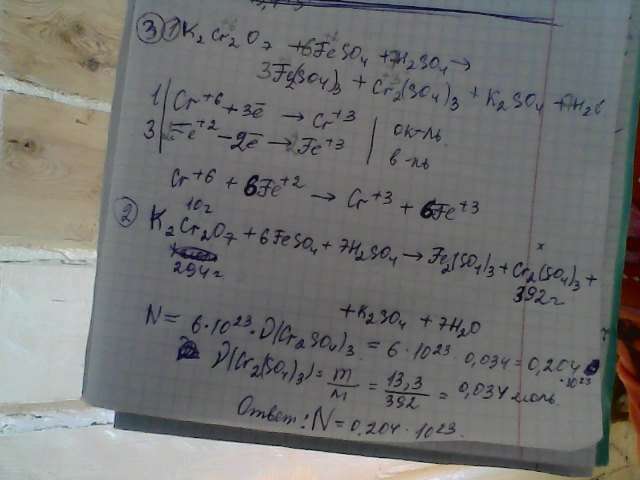 ③ ① K₂Cr₂O₇ + 6FeSO₄ + 7H₂SO₄ →
3Fe₂(SO₄)₃ + Cr₂(SO₄)₃ + K₂SO₄ + 7H₂O
1 | Cr⁺⁶ + 3ē → Cr⁺³ | ок-ль
3 | Fe⁺² - 2ē → Fe⁺³ | в-ль
Cr⁺⁶ + 6Fe⁺² → Cr⁺³ + 6Fe⁺³
10г x
② K₂Cr₂O₇ + 6FeSO₄ + 7H₂SO₄ → Fe₂(SO₄)₃ + Cr₂(SO₄)₃ +
294г 392г
+ K₂SO₄ + 7H₂O
N = 6·10²³·υ(Cr₂SO₄)₃ = 6·10²³·0,034 = 0,204·10²³
υ(Cr₂(SO₄)₃) = m/M = 13,3/392 = 0,034 моль.
Ответ: N = 0,204·10²³.